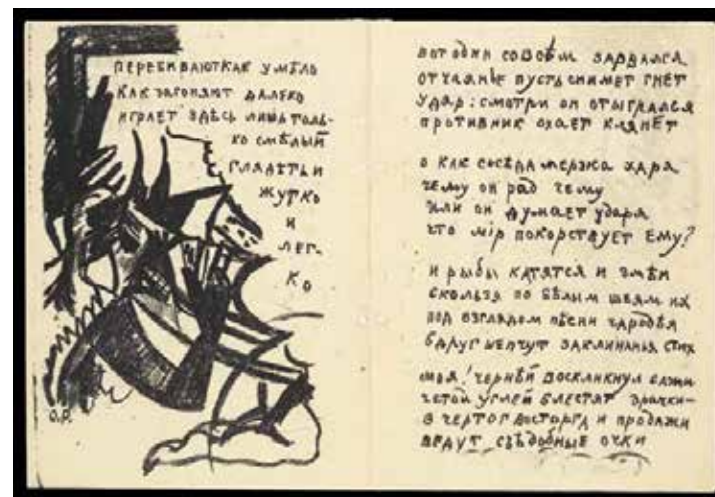 ПЕРЕБИВАЮТКАК УМѢЛО
КАК ЗАГОНЯЮТ ДАЛЕКО
ИГРАЕТ ЗДѢСЬ ЛИШЬ ТОЛЬ-
КО СМѢЛЫЙ
ГЛЯДѢТЬ И
ЖУТКО
И
ЛЕГ-
КО
О.Р.
ВОТ ОДИН СОВСѢМ ЗАРВАЛСЯ
ОТЧАЯНЬЕ ПУСТЬ СНИМЕТ ГНЕТ
УДАР: СМОТРИ ОН ОТЫГРАЛСЯ
ПРОТИВНИК ОХАЕТ КЛЯНЁТ
О КАК СОСѢДА МЕРЗКА ХАРЯ
ЧЕМУ ОН РАД ЧЕМУ
ИЛИ ОН ДУМАЕТ УДАРЯ
ЧТО МІР ПОКОРСТВУЕТ ЕМУ?
И РЫБЫ КАТЯТСЯ И ЗМѢИ
СКОЛЬЗЯ ПО БѢЛЫМ ШЕЯМ ИХ
ПОД ВЗГЛЯДОМ ПѢСНИ ЧАРОДѢЯ
ВДРУГ ШЕПЧУТ ЗАКЛИНАНЬЯ СТИХ
МОЯ! ЧЕРНѢЙ ВОСКЛИКНУЛ САЖИ
ЧЕТОЙ УГЛЕЙ БЛЕСТЯТ ЗРАЧКИ–
В ЧЕРТОГ ВОСТОРГА И ПРОДАЖИ
ВЕДУТ СЪѢДОБНЫЕ ОЧКИ